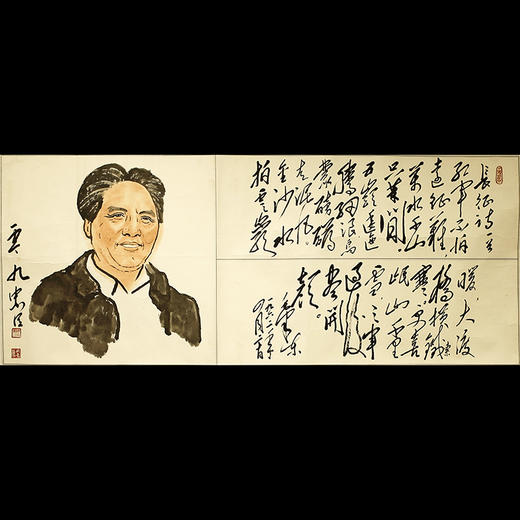 長征詩一首
紅軍不怕
遠征難,
萬水千山
只等閒
五嶺逶迤
騰細浪烏
蒙磅礴
走泥丸
金沙水
拍雲崖
暖,大渡
橋橫鐵索
寒,更喜
岷山千里
雪,三軍
過後
盡開
顏。
毛澤東